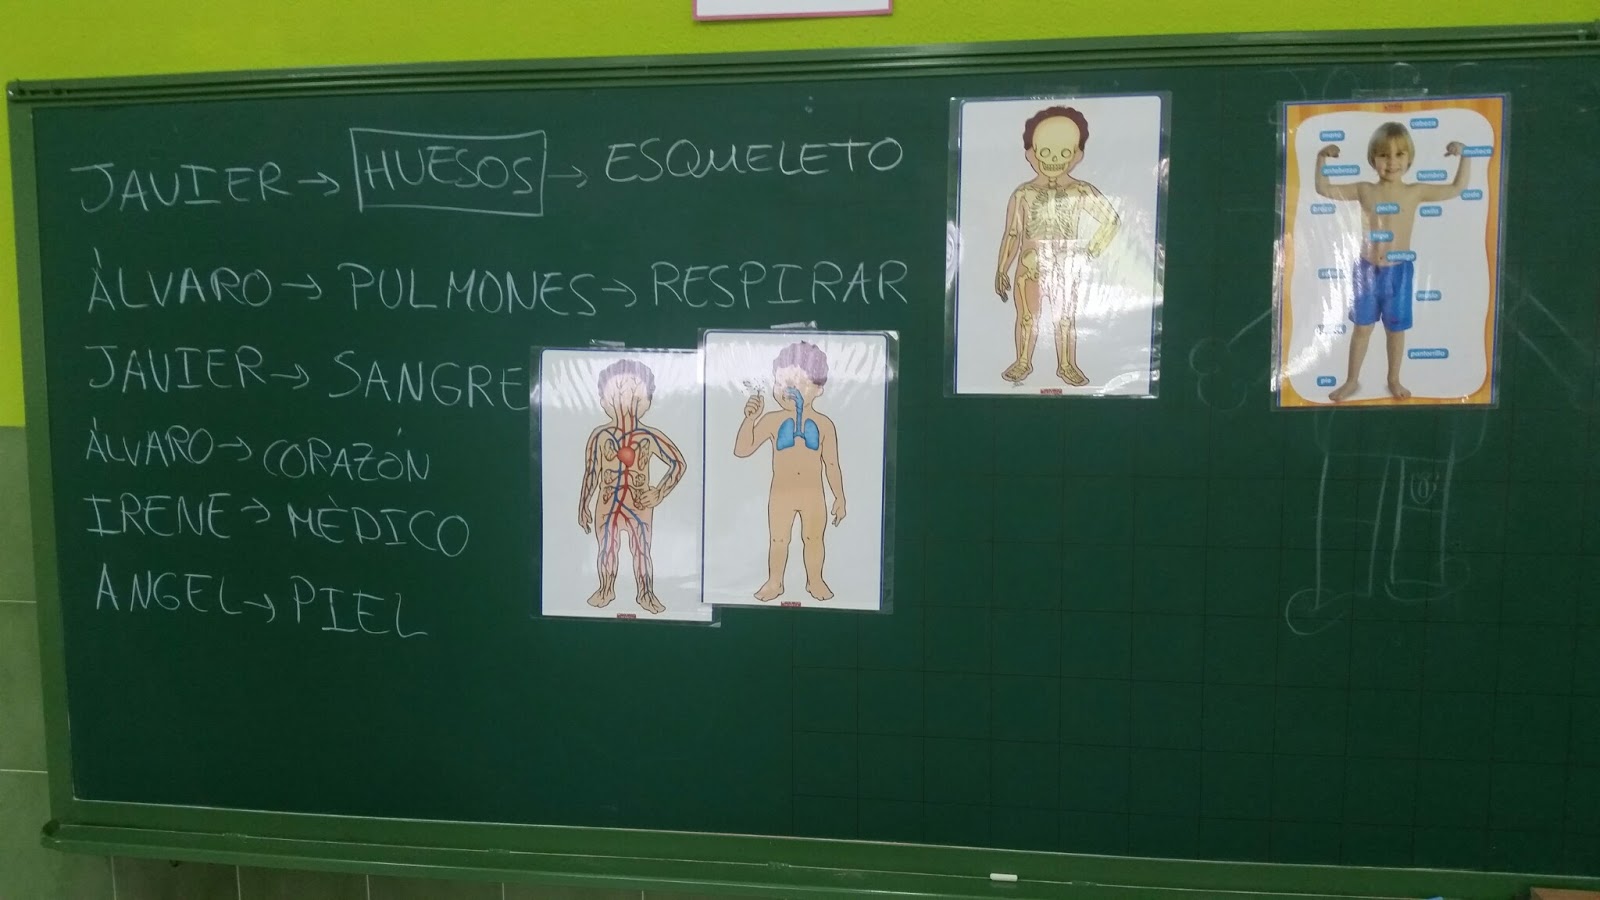 JAVIER → HUESOS → ESQUELETO
ÁLVARO → PULMONES → RESPIRAR
JAVIER → SANGRE
ÁLVARO → CORAZÓN
IRENE → MÉDICO
ANGEL → PIEL
mano
cabeza
muñeca
antebrazo
hombro
codo
brazo
pecho
axila
ombligo
muslo
pantorrilla
pie